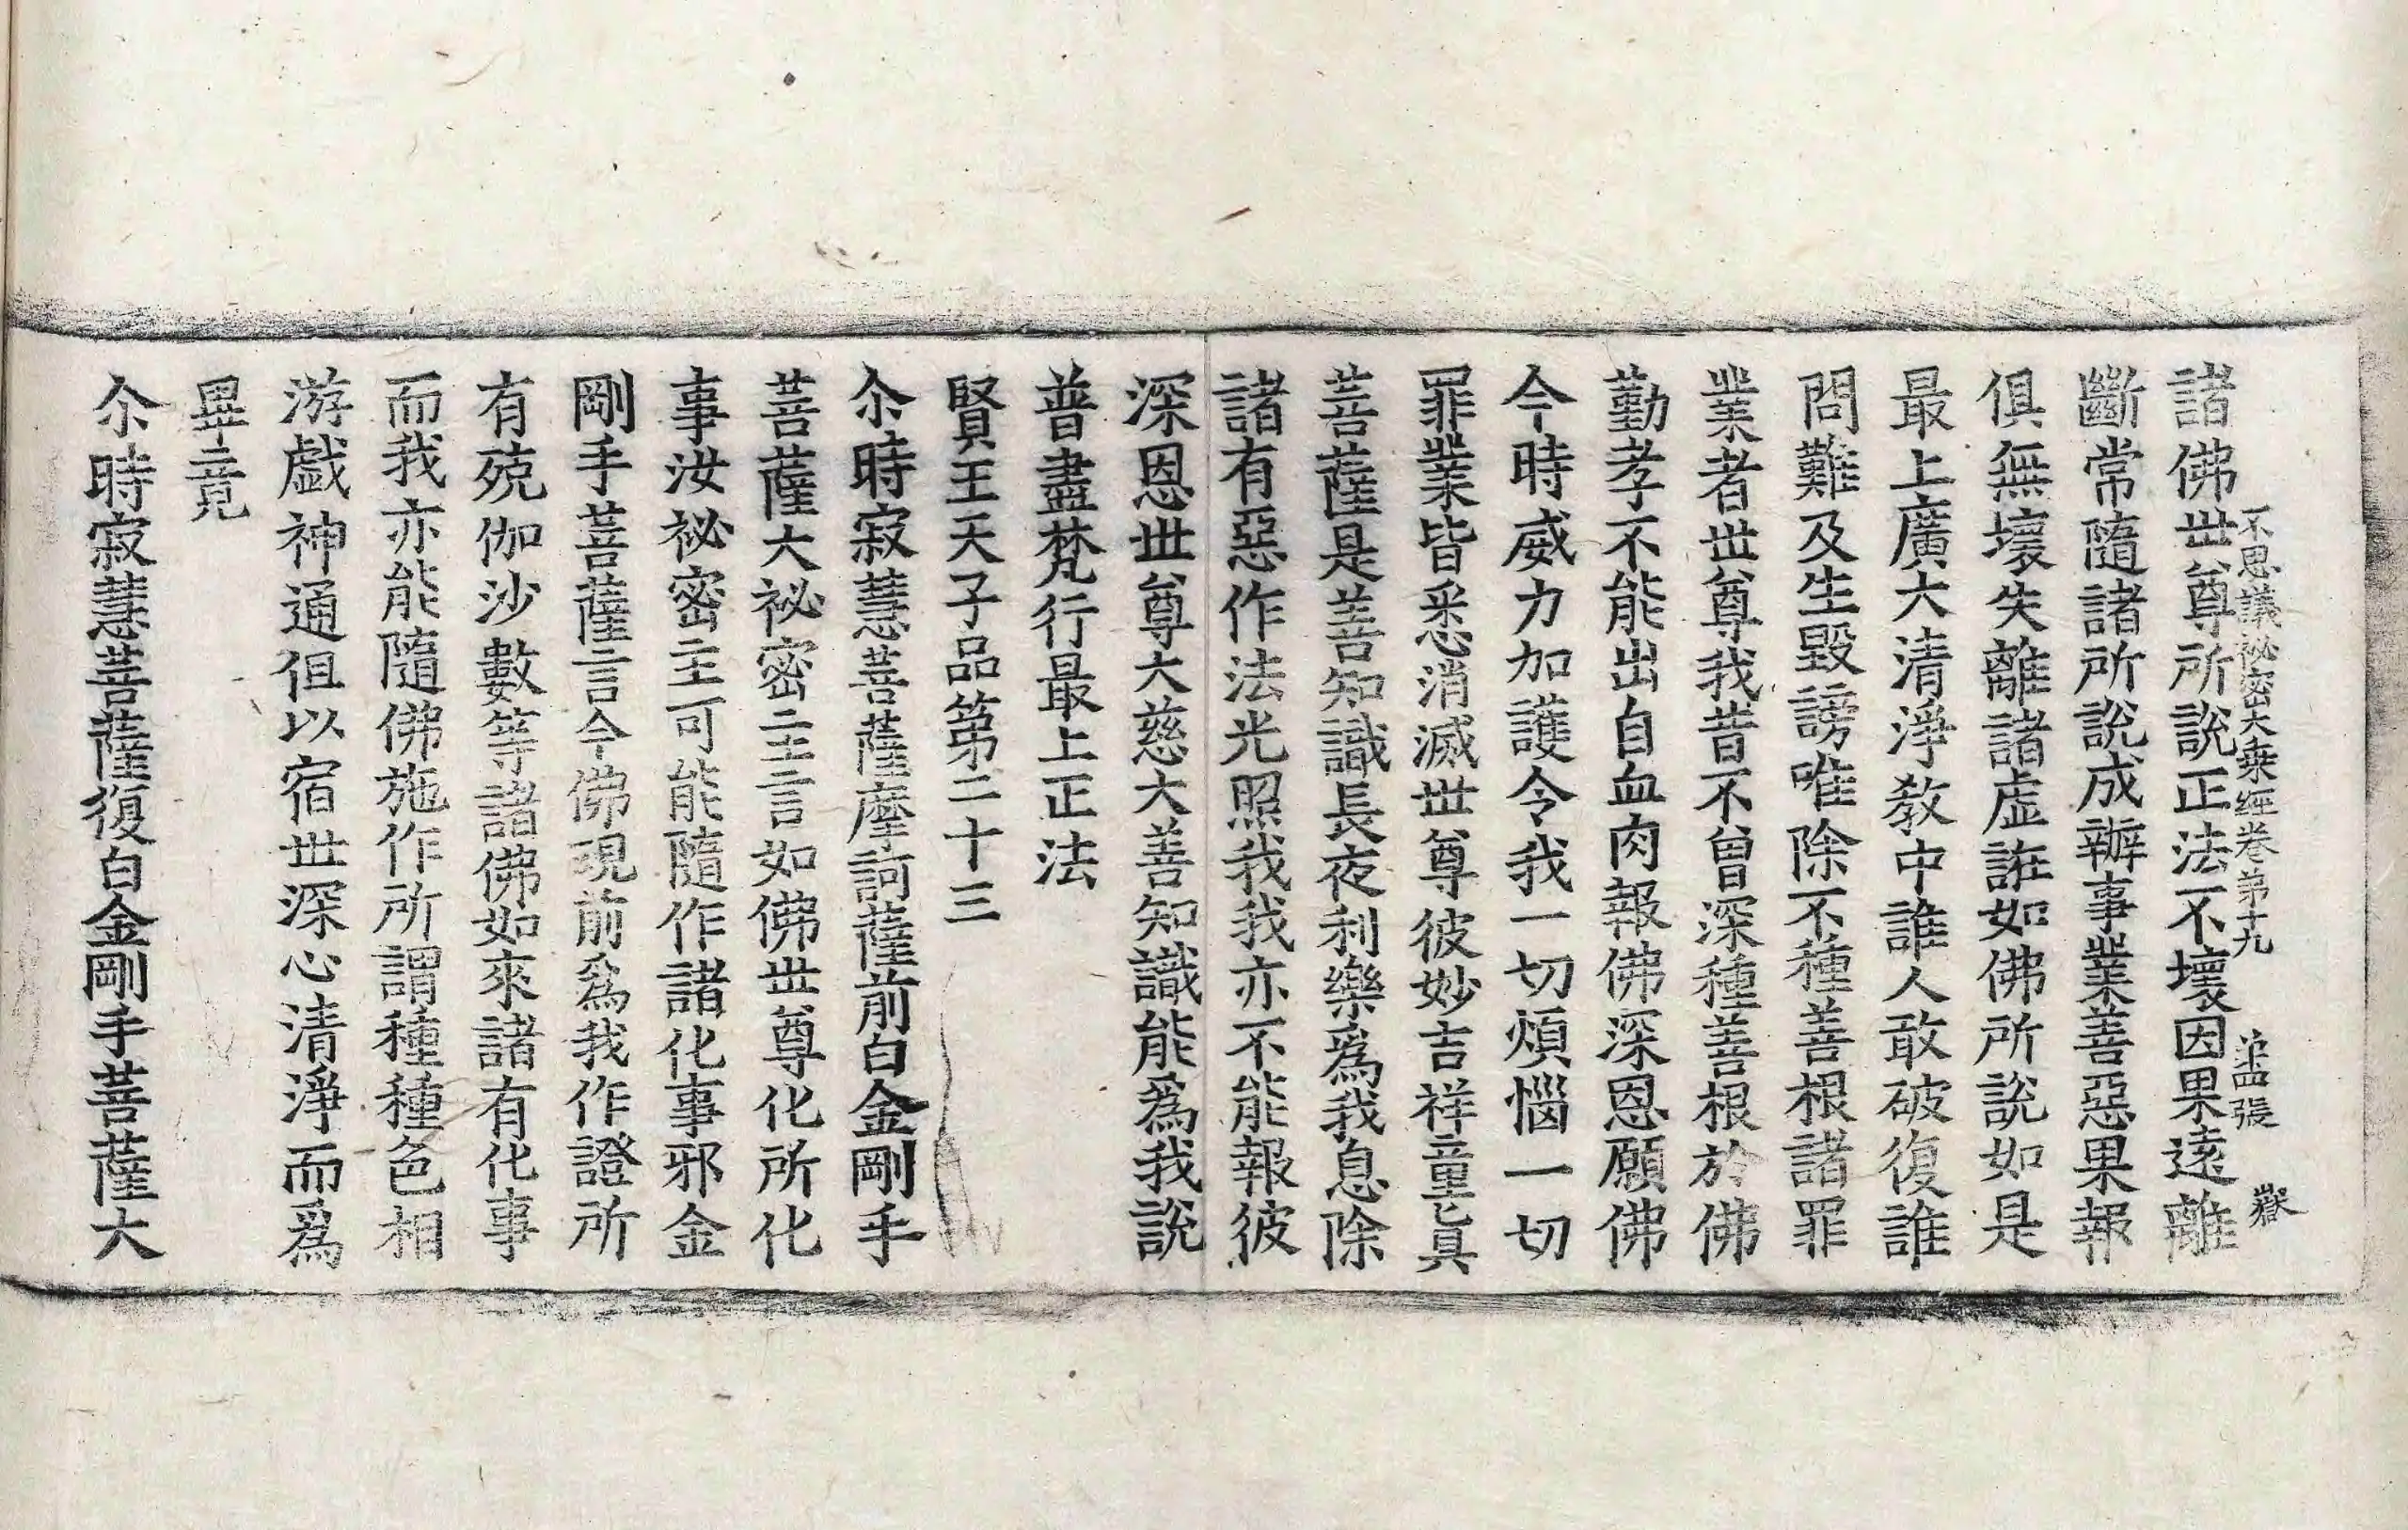 不思議祕密大乗經卷第十九 第四張 巖
諸佛世尊所說正法不壞因果遠離
斷常隨諸所說成辦事業善惡果報
俱無壞失離諸虛誑如佛所說如是
最上廣大清淨教中誰人敢破復誰
問難及生毀謗唯除不種善根諸罪
業者世尊我昔不曾深種善根於佛
勤孝不能出自血肉報佛深恩願佛
今時威力加護令我一切煩惱一切
罪業皆悉消滅世尊彼妙吉祥童真
菩薩是善知識長夜利樂爲我息除
諸有惡作法光照我我亦不能報彼
深恩世尊大慈大善知識能爲我說
普盡梵行最上正法
賢王天子品第二十三
尒時寂慧菩薩摩訶薩前白金剛手
菩薩大祕密主言如佛世尊化所化
事汝祕密主可能隨作諸化事邪金
剛手菩薩言今佛現前爲我作證所
有殑伽沙數等諸佛如來諸有化事
而我亦能隨佛施作所謂種種色相
游戲神通但以宿世深心清淨而爲
畢竟
尒時寂慧菩薩復白金剛手菩薩大